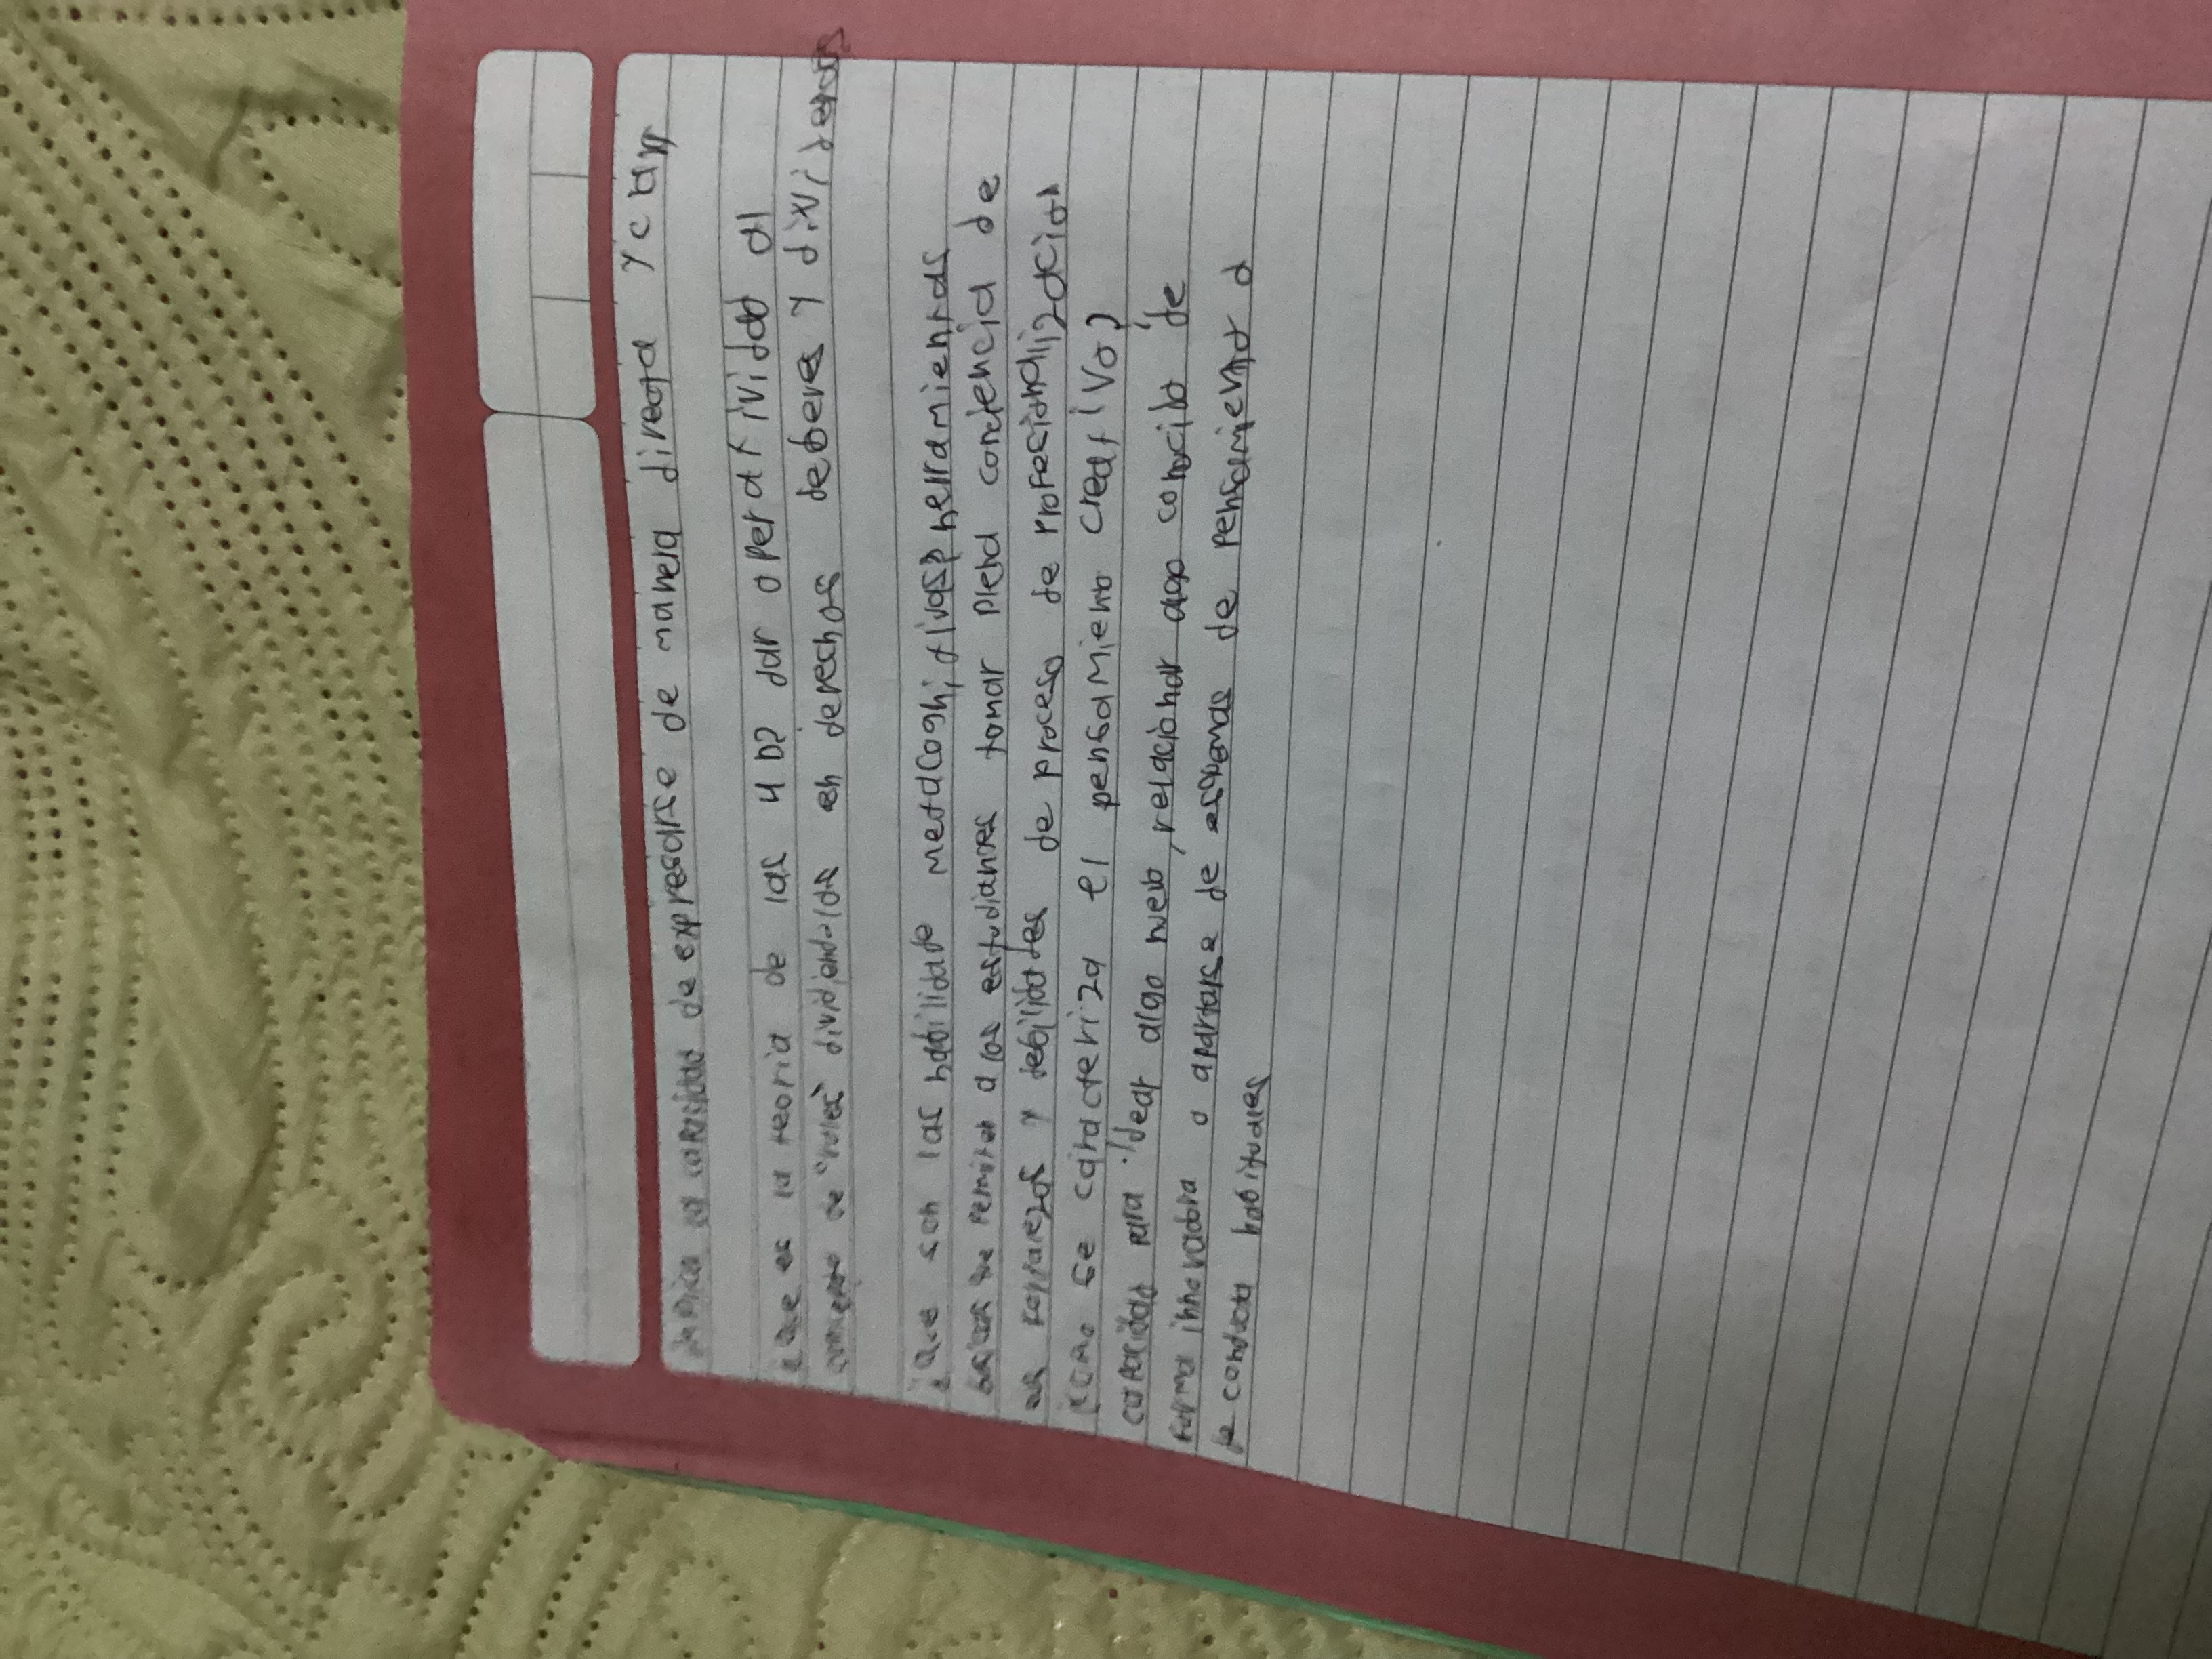 implica la capacidad de expresarse de manera directa y clara
¿Que es la teoria de las 4 D? dar operatividad al
concepto de "roles" dividiendo-los en derechos deberes y diviversos
¿Que son las habilidade metacognitivas? herramientas
basicas que permiten a los estudianes tomar plena conciencia de
sus fortalezas y debilidades de proceso de profesionalizacion
¿Como se caracteriza el pensamiento creativo?
capacidad para idear algo nuevo, relacionar algo conocido de
forma innovadora o apartarse de esquemas de pensamiento o
de conducta habituales